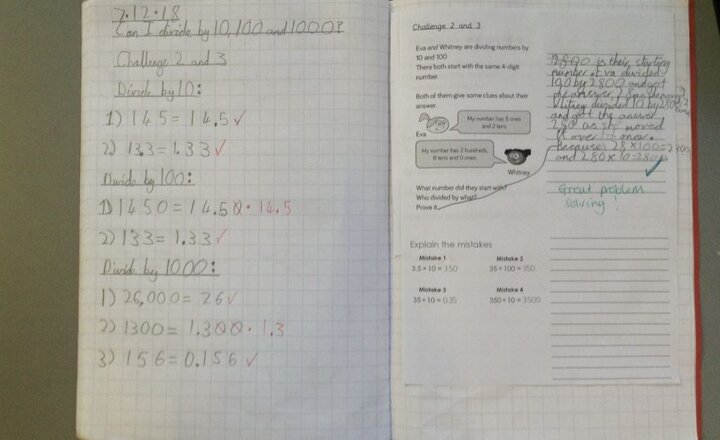 7.12.18
Can I divide by 10, 100 and 1000?
Challenge 2 and 3
Divide by 10:
1) 145 = 14.5 ✓
2) 13.3 = 1.33 ✓
Divide by 100:
1) 1450 = 14.50 • 14.5
2) 133 = 1.33 ✓
Divide by 1000:
1) 26,000 = 26 ✓
2) 1300 = 1.300 • 1.3
3) 156 = 0.156 ✓
Challenge 2 and 3
Eva and Whitney are dividing numbers by
10 and 100
There both start with the same 4-digit
number.
Both of them give some clues about their
answer.
My number has 8 ones
and 2 tens.
Eva
My number has 2 hundreds,
8 tens and 0 ones.
Whitney
What number did they start with?
Who divided by what?
Prove it.
2800 is their starting
number. Eva divided
100 by 2800 and got
the answer 28
Whitney divided 10 by 2800
and got the answer
280 as she moved
it over
because 28 × 100 = 2800
and 280 × 10 = 2800
✓
Great problem
solving!
Explain the mistakes
Mistake 1
Mistake 2
3.5 × 10 = 350
35 × 100 = 350
Mistake 3
Mistake 4
35 ÷ 10 = 0.35
350 ÷ 10 = 3500